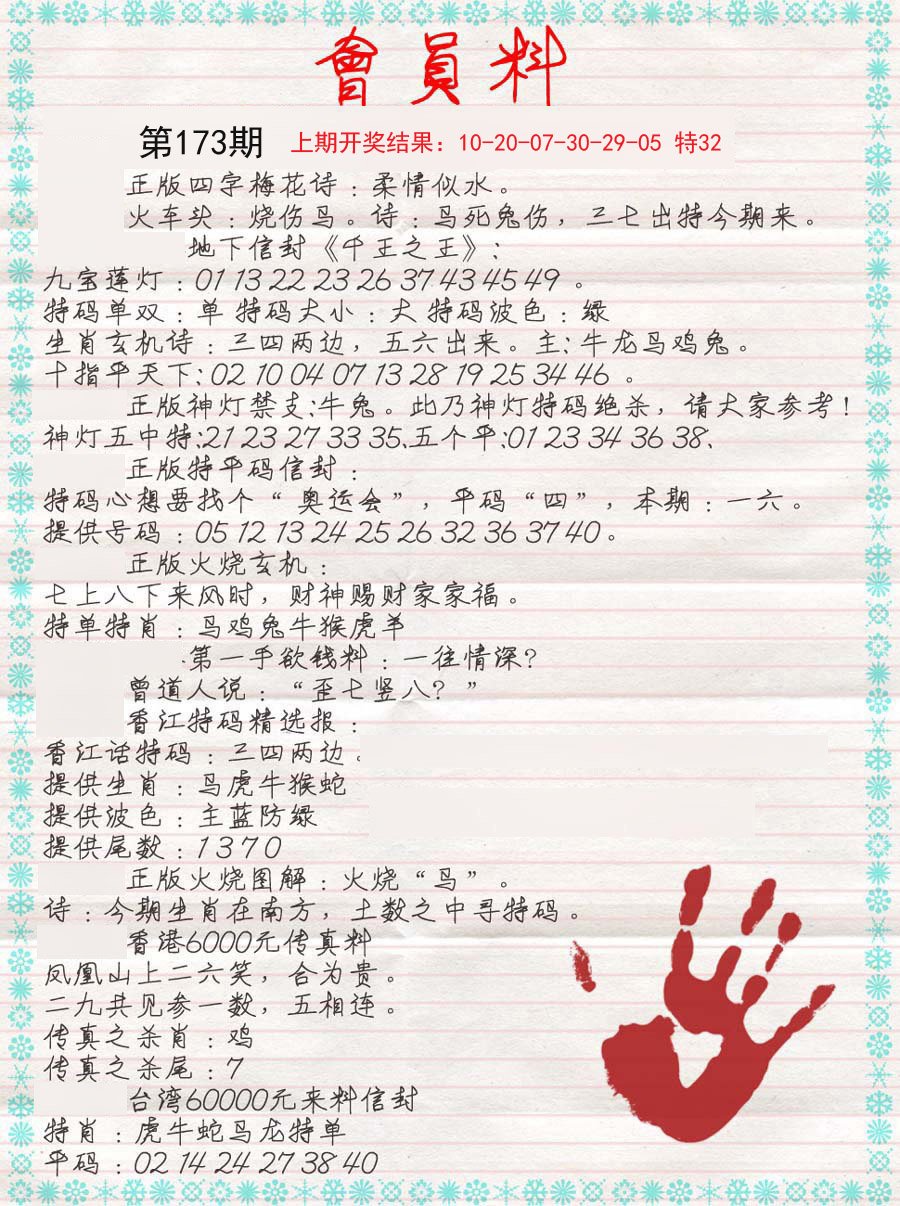 會員料
第173期 上期开奖结果：10-20-07-30-29-05 特32
正版四字梅花诗：柔情似水。
火车头：烧伤鸟。诗：鸟死兔伤，三七出特今期来。
地下信封《千王之王》：
九宝莲灯：01 13 22 23 26 37 43 45 49 。
特码单双：单 特码大小：大 特码波色：绿
生肖玄机诗：三四两边，五六出来。主：牛龙鸟鸡兔。
十指平天下：02 10 04 07 13 28 19 25 34 46 。
正版神灯禁支：牛兔。此乃神灯特码绝杀，请大家参考！
神灯五中特：21 23 27 33 35、五个平：01 23 34 36 38、
正版特平码信封：
特码心想要找个“奥运会”，平码“四”，本期：一六。
提供号码：05 12 13 24 25 26 32 36 37 40。
正版火烧玄机：
七上八下来风时，财神赐财家家福。
特单特肖：鸟鸡兔牛猴虎羊
.第一手欲钱料：一往情深？
曾道人说：“歪七竖八？”
香江特码精选报：
香江话特码：三四两边。
提供生肖：鸟虎牛猴蛇
提供波色：主蓝防绿
提供尾数：1 3 7 0
正版火烧图解：火烧“鸟”。
诗：今期生肖在南方，土数之中寻特码。
香港6000元传真料
凤凰山上二六笑，合为贵。
二九共见参一数，五相连。
传真之杀肖：鸡
传真之杀尾：7
台湾60000元来料信封
特肖：虎牛蛇鸟龙特单
平码：02 14 24 27 38 40